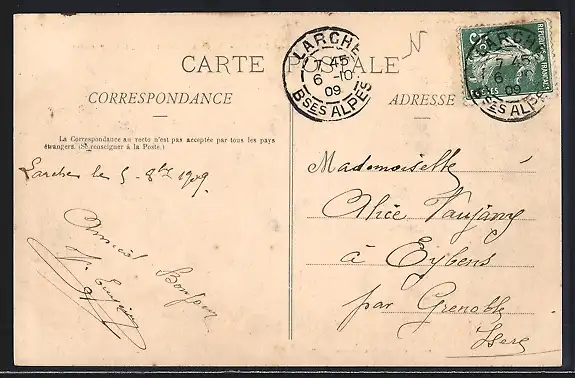 CARTE POSTALE
CORRESPONDANCE
La Correspondance au recto n'est pas acceptée par tous les pays
étrangers. (Se renseigner à la Poste.)
Larche le 5 - 8bre 1909
Amical Bonjour
LARCHE
7 45
6 -10
09
BSES ALPES
N
ADRESSE
LARCHE
7 45
6
09
BSES ALPES
Mademoiselle
Alice Vaujany
à Eybens
par Grenoble
Isère